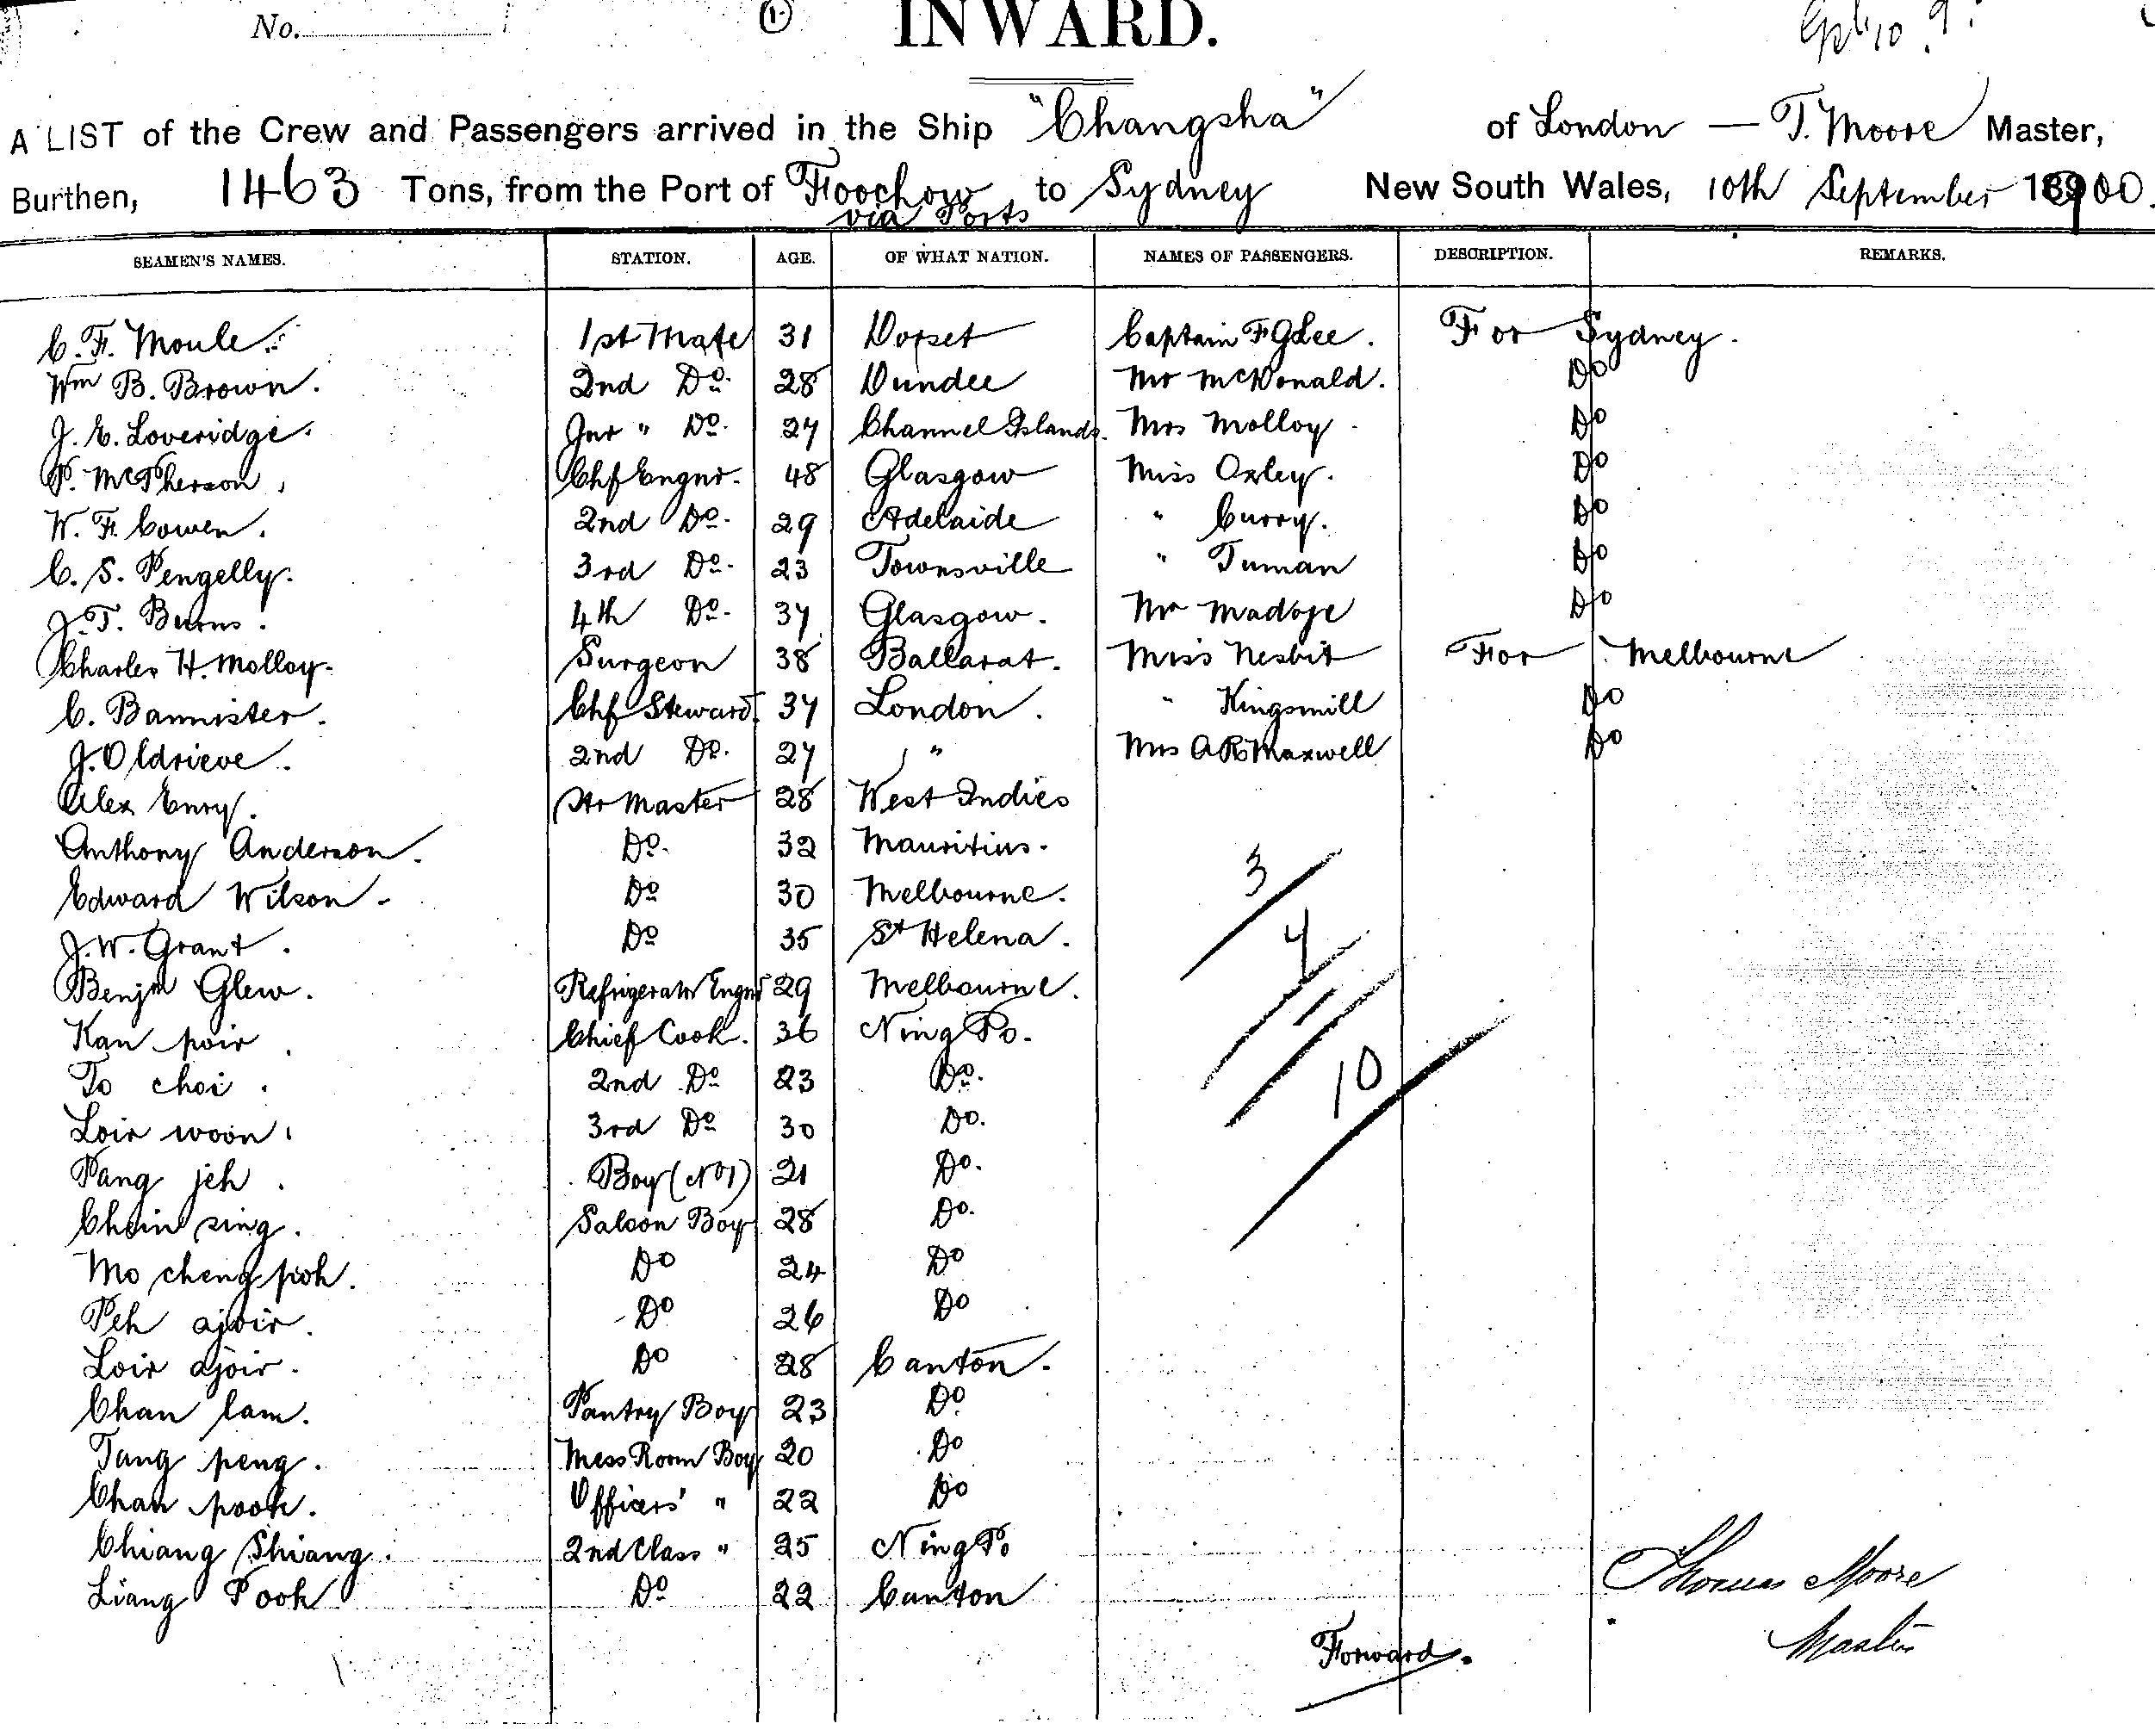 No. 1. INWARD.
A LIST of the Crew and Passengers arrived in the Ship "Changsha" of London — T. Moore Master,
Burthen, 1463 Tons, from the Port of Foochow via Ports to Sydney New South Wales, 10th September 1900.
SEAMEN'S NAMES. STATION. AGE. OF WHAT NATION. NAMES OF PASSENGERS. DESCRIPTION. REMARKS.
C. F. Moule. 1st Mate 31 Dorset Captain F G Lee. For Sydney.
Wm B. Brown. 2nd Do. 28 Dundee Mr McDonald. Do
J. E. Loveridge. Jnr " Do. 27 Channel Islands. Mrs Molloy. Do
P. McPherson, Chf Engnr. 48 Glasgow Miss Oxley. Do
W. F. Cowen. 2nd Do. 29 Adelaide " Curry. Do
C. S. Pengelly. 3rd Do. 23 Townsville " Tuman Do
J. T. Burns. 4th Do. 37 Glasgow. Mr Do
Charles H. Molloy. Surgeon 38 Ballarat. Miss Nesbit For Melbourne
C. Bannister. Chf Steward. 37 London. " Kingsmill Do
J. Oldrieve. 2nd Do. 27 " Mrs A R Maxwell Do
Alex Enry. Qr Master 28 West Indies
Anthony Anderson. Do. 32 Mauritius.
Edward Wilson. Do 30 Melbourne.
J. W. Grant. Do 35 St Helena.
Benjm Glew. Refrigerator Engnr 29 Melbourne.
Kan poir. Chief Cook. 36 Ning Po.
To choi. 2nd Do 23 Do.
Loir woon. 3rd Do 30 Do.
Pang jeh. Boy (No 1) 21 Do.
Choin sing. Saloon Boy 28 Do.
Mo cheng poh. Do 24 Do
Peh ajoir. Do 26 Do
Loir ajoir. Do 28 Canton.
Chan lam. Pantry Boy 23 Do
Tang peng. Mess Room Boy 20 Do
Chan pook. Officers' " 22 Do
Chiang Shiang. 2nd Class " 25 Ning Po
Liang Pook Do 22 Canton
3
4
10
Thomas Moore
Master
Forward.